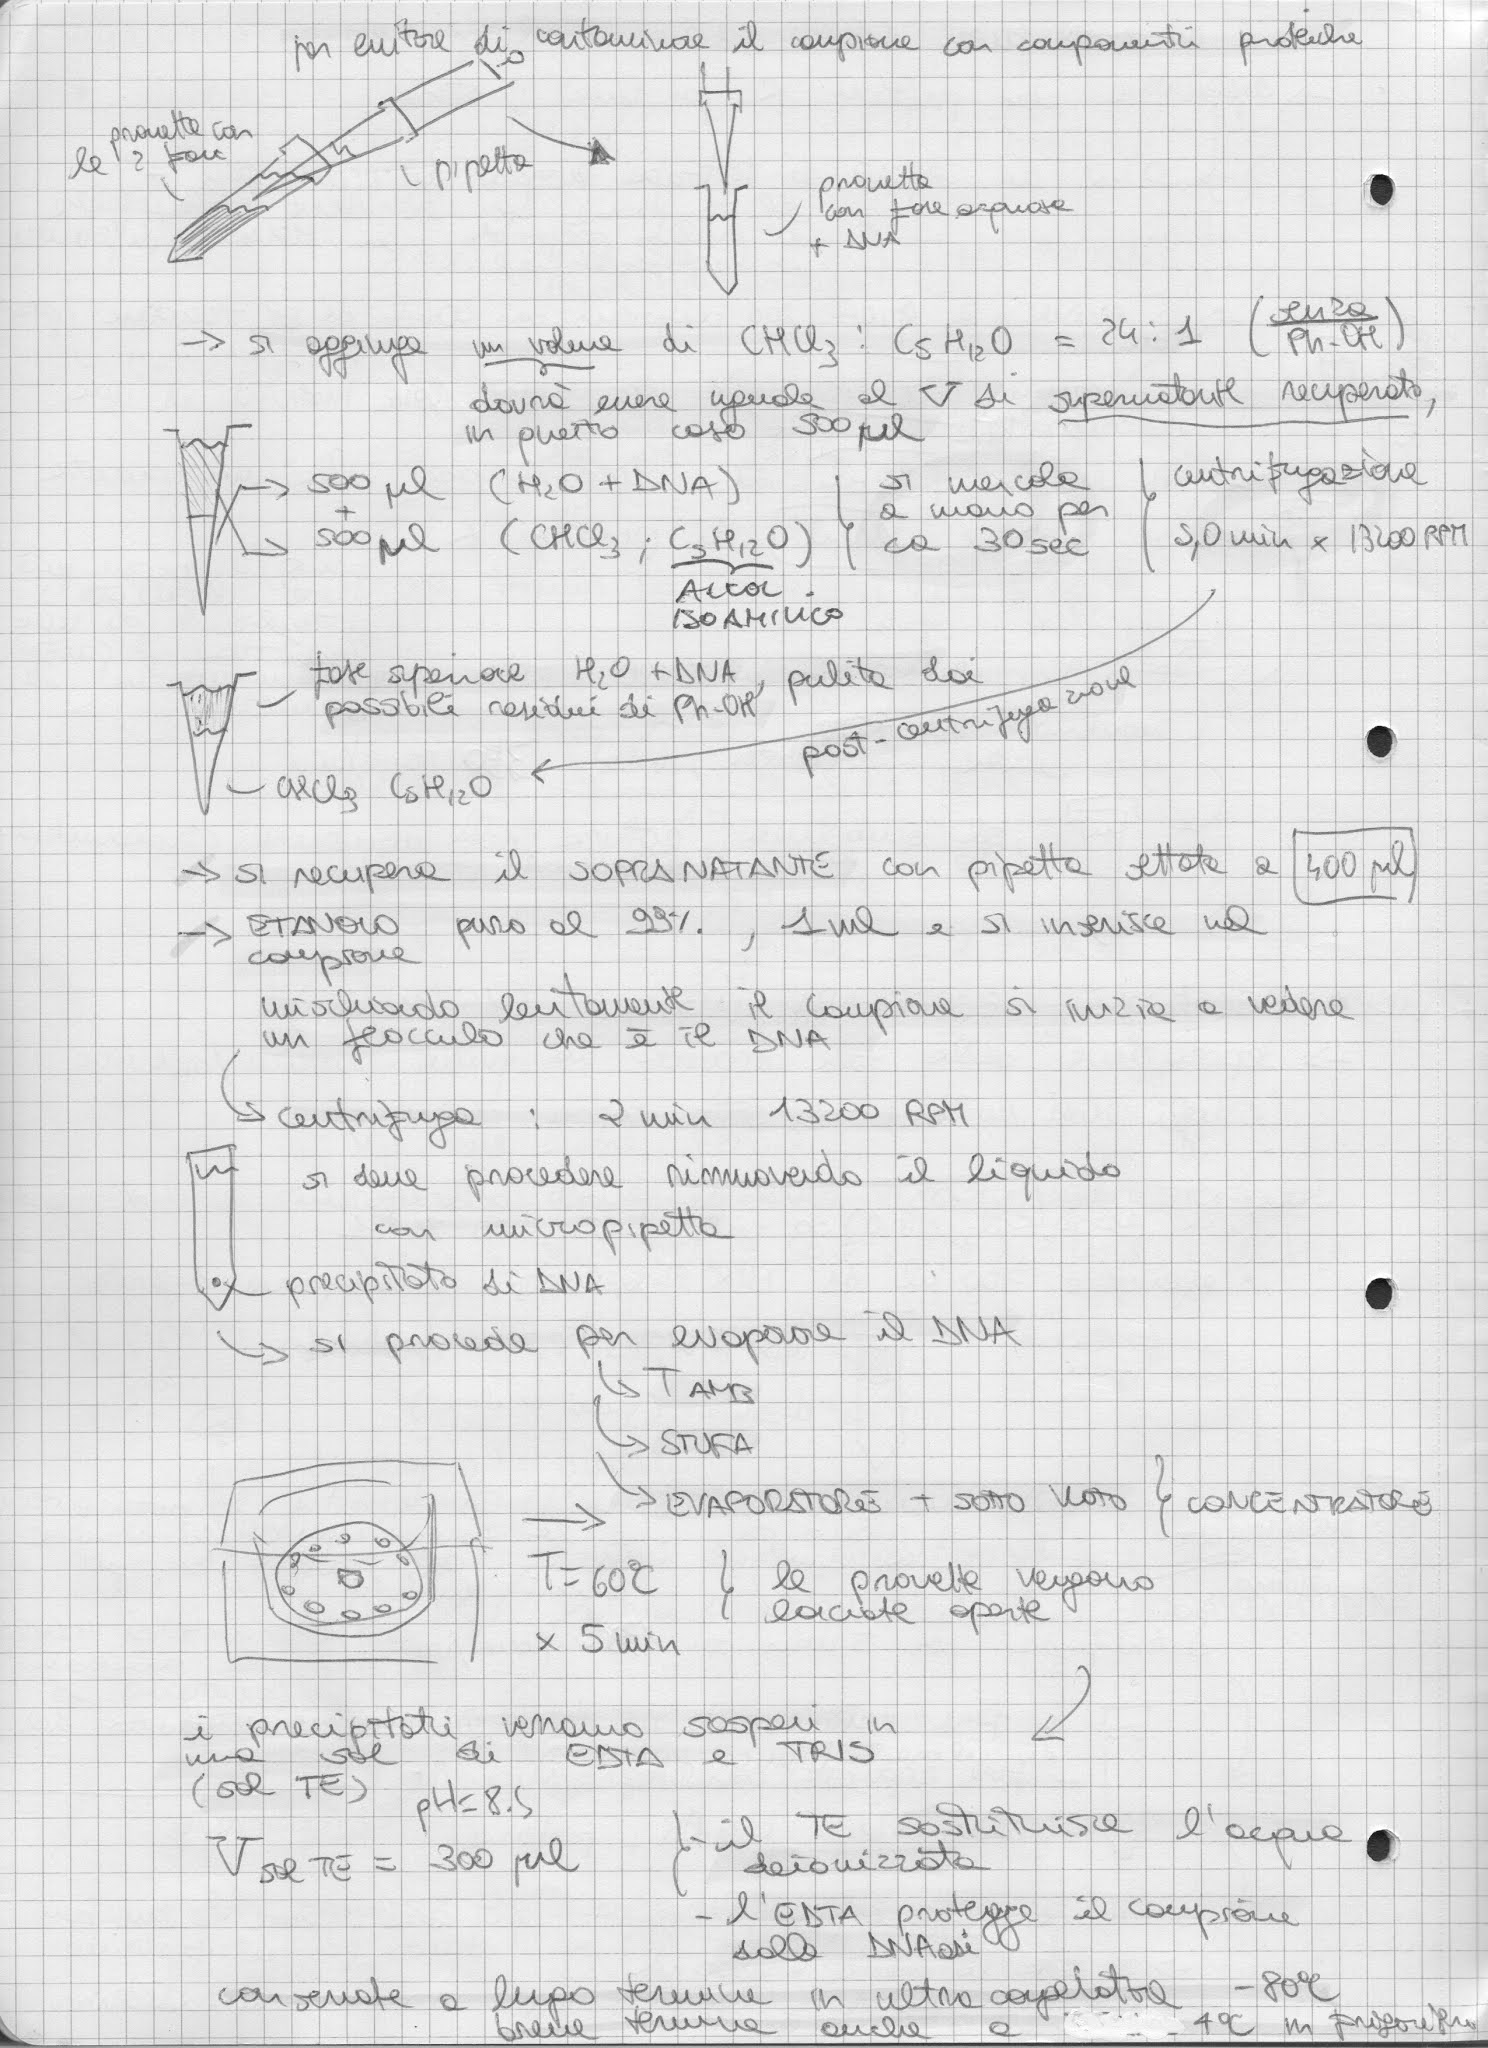 per evitare di contaminare il campione con componenti proteiche
provetta con
le 2 fasi
pipetta
provetta
con fase acquosa
+ DNA
→ si aggiunge un volume di CHCl3 : C5H12O = 24 : 1 (senza Ph-OH)
dovrà essere uguale al V di supernatante recuperato,
in questo caso 500 μl
→ 500 μl (H2O + DNA)
+
→ 500 μl (CHCl3 ; C5H12O)
ALCOL
ISOAMILICO
si mescola
a mano per
ca 30 sec
centrifugazione
5,0 min x 13200 RPM
fase superiore H2O + DNA, pulita dai
possibili residui di Ph-OH
post-centrifugazione
CHCl3 C5H12O
→ si recupera il SOPRANATANTE con pipetta settata a 400 μl
→ ETANOLO puro al 99%, 1 ml e si inserisce nel
campione
mischiando lentamente il campione si inizia a vedere
un flocculo che è il DNA
centrifuga : 2 min 13200 RPM
si deve procedere rimuovendo il liquido
con micropipetta
precipitato di DNA
si procede per evaporare il DNA
T AMB
STUFA
EVAPORATORE + SOTTO VUOTO } CONCENTRATORE
T = 60°C
x 5 min
le provette vengono
lasciate aperte
i precipitati verranno sospesi in
una sol di EDTA e TRIS
(sol TE) pH = 8.5
V sol TE = 300 μl
- il TE sostituisce l'acqua
deionizzata
- l'EDTA protegge il campione
dalla DNAasi
conservate a lungo termine in ultracongelatore -80°C
breve termine anche a 4°C in frigorifero